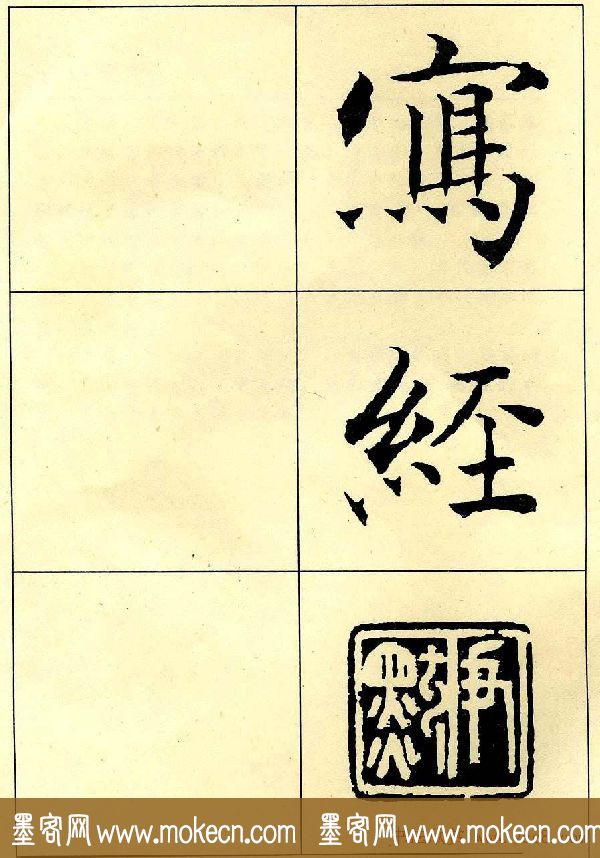 寫
經
墨客网 www.mokecn.com 墨客网 www.mokecn.com